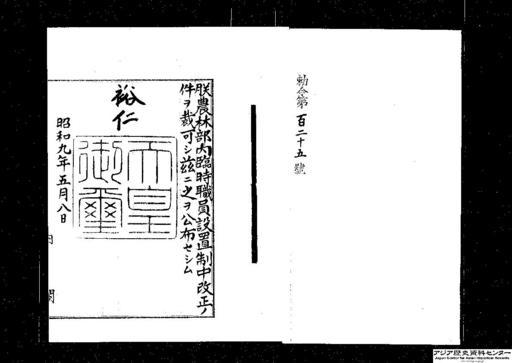 勅令第百二十五號
朕農林部内臨時職員設置制中改正ノ
件ヲ裁可シ茲ニ之ヲ公布セシム
裕仁
天皇御璽
昭和九年五月八日
アジア歴史資料センター
Japan Center for Asian Historical Records